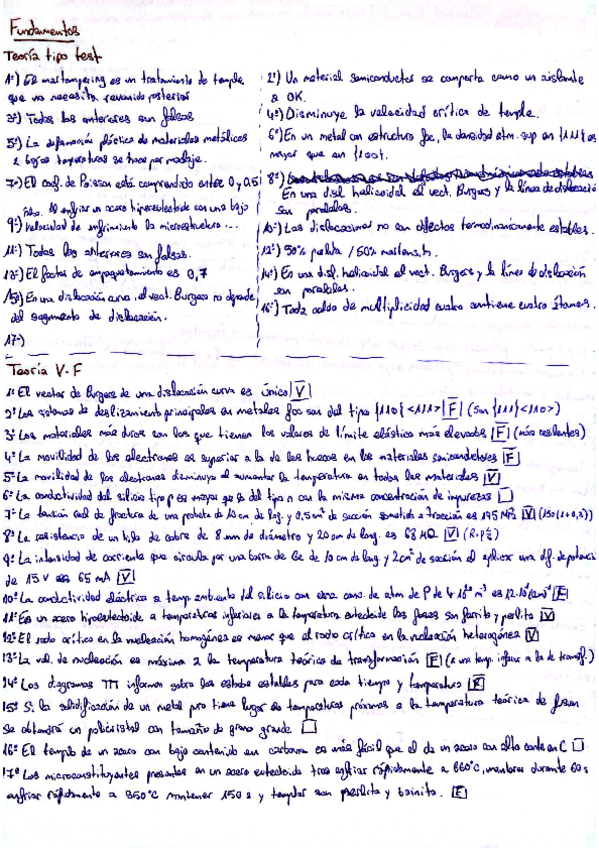 Fundamentos
Teoría tipo test
1º) El martempering es un tratamiento de temple
que no necesita revenido posterior
3º) Todas las anteriores son falsas
5º) La deformación plástica de materiales metálicos
a bajas temperaturas se hace por maclaje.
7º) El coef. de Poisson está comprendido entre 0 y 0,5
Falso. Al enfriar un acero hipereutectoide con una baja
9º) velocidad de enfriamiento la microestructura...
11º) Todas las anteriores son falsas.
13º) El factor de empaquetamiento es 0,7
15º) En una dislocación curva, el vect. Burgers no depende
del segmento de dislocación.
17º)
2º) Un material semiconductor se comporta como un aislante
a 0K.
4º) Disminuye la velocidad crítica de temple.
6º) En un metal con estructura fcc, la densidad atm. sup en {111} es
mayor que en {100}.
8º)
En una disl. helicoidal el vect. Burgers y la línea de dislocación
son paralelas.
10º) Las dislocaciones no son defectos termodinámicamente estables.
12º) 50% perlita / 50% martens.h.
14º) En una disl. helicoidal el vect. Burgers y la línea de dislocación
son paralelas.
16º) Todo celda de multiplicidad cuatro contiene cuatro átomos.
Teoría V-F
1º El vector de Burgers de una dislocación curva es único V
2º Los sistemas de deslizamiento principales en metales fcc son del tipo {110}<111> F (son {111}<110>)
3º Los materiales más duros son los que tienen los valores de límite elástico más elevados F (más resilentes)
4º La movilidad de los electrones es superior a la de los huecos en los materiales semiconductores F
5º La movilidad de los electrones disminuye al aumentar la temperatura en todos los materiales V
6º La conductividad del silicio tipo p es mayor que la del tipo n con la misma concentración de impurezas
7º La tensión real de fractura de una probeta de 10 cm de long. y 0,5 cm² de sección sometida a tracción es 195 MPa V (150(1+0,3))
8º La resistencia de un hilo de cobre de 8 mm de diámetro y 20 cm de long. es 68 MΩ V
9º La intensidad de corriente que circula por una barra de Ge de 10 cm de long. y 2 cm² de sección al aplicar una dif. de potencial
de 15 V es 65 mA V
10º La conductividad eléctrica a temp. ambiente del silicio con una conc. de atm de P de m⁻³ es F
11º En un acero hipoeutectoide a temperaturas inferiores a la temperatura eutectoide las fases son ferrita y perlita V
12º El radio crítico en la nucleación homogénea es menor que el radio crítico en la nucleación heterogénea V
13º La vel. de nucleación es máxima a la temperatura teórica de transformación F (a una temp. inferior a la de transf.)
14º Los diagramas TTT informan sobre los estados estables para cada tiempo y temperatura
15º Si la solidificación de un metal puro tiene lugar a temperaturas próximas a la temperatura teórica de fusión
se obtendrá un policristal con tamaño de grano grande
16º El temple de un acero con bajo contenido en carbono es más fácil que el de un acero con alto cont. en C
17º Los microconstituyentes presentes en un acero eutectoide tras enfriar rápidamente a 660ºC, mantener durante 60s
enfriar rápidamente a 350ºC mantener 150s y templar son perlita y bainita. F